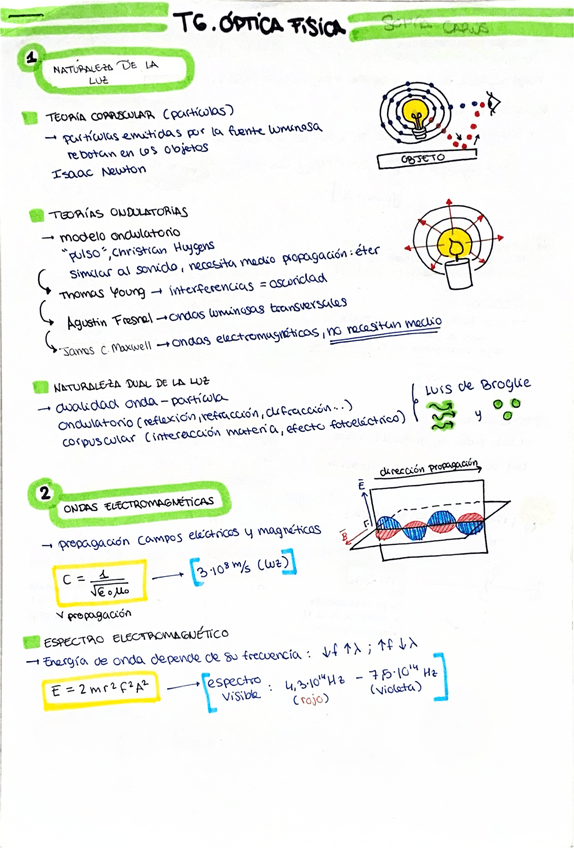 T6. ÓPTICA FÍSICA
1
NATURALEZA DE LA
LUZ
TEORÍA CORPUSCULAR (partículas)
→ partículas emitidas por la fuente luminosa
rebotan en los objetos
Isaac Newton
OBJETO
TEORÍAS ONDULATORIAS
→ modelo ondulatorio
"pulso", Christian Huygens
similar al sonido, necesita medio propagación: éter
Thomas Young → interferencias = oscuridad
Agustin Fresnel → ondas luminosas transversales
James C. Maxwell → ondas electromagnéticas, no necesitan medio
NATURALEZA DUAL DE LA LUZ
→ dualidad onda-partícula
ondulatorio (reflexión, refracción, difracción...)
corpuscular (interacción materia, efecto fotoeléctrico)
Luis de Broglie
y
2
ONDAS ELECTROMAGNÉTICAS
→ propagación campos eléctricos y magnéticos
dirección propagación
E
B
C = 1/√ε₀μ₀ → [3·10⁸ m/s (luz)]
v propagación
ESPECTRO ELECTROMAGNÉTICO
→ Energía de onda depende de su frecuencia: ↓f ↑λ ; ↑f ↓λ
E = 2mπ²f²A² → [espectro visible: 4,3·10¹⁴ Hz (rojo) - 7,5·10¹⁴ Hz (violeta)]